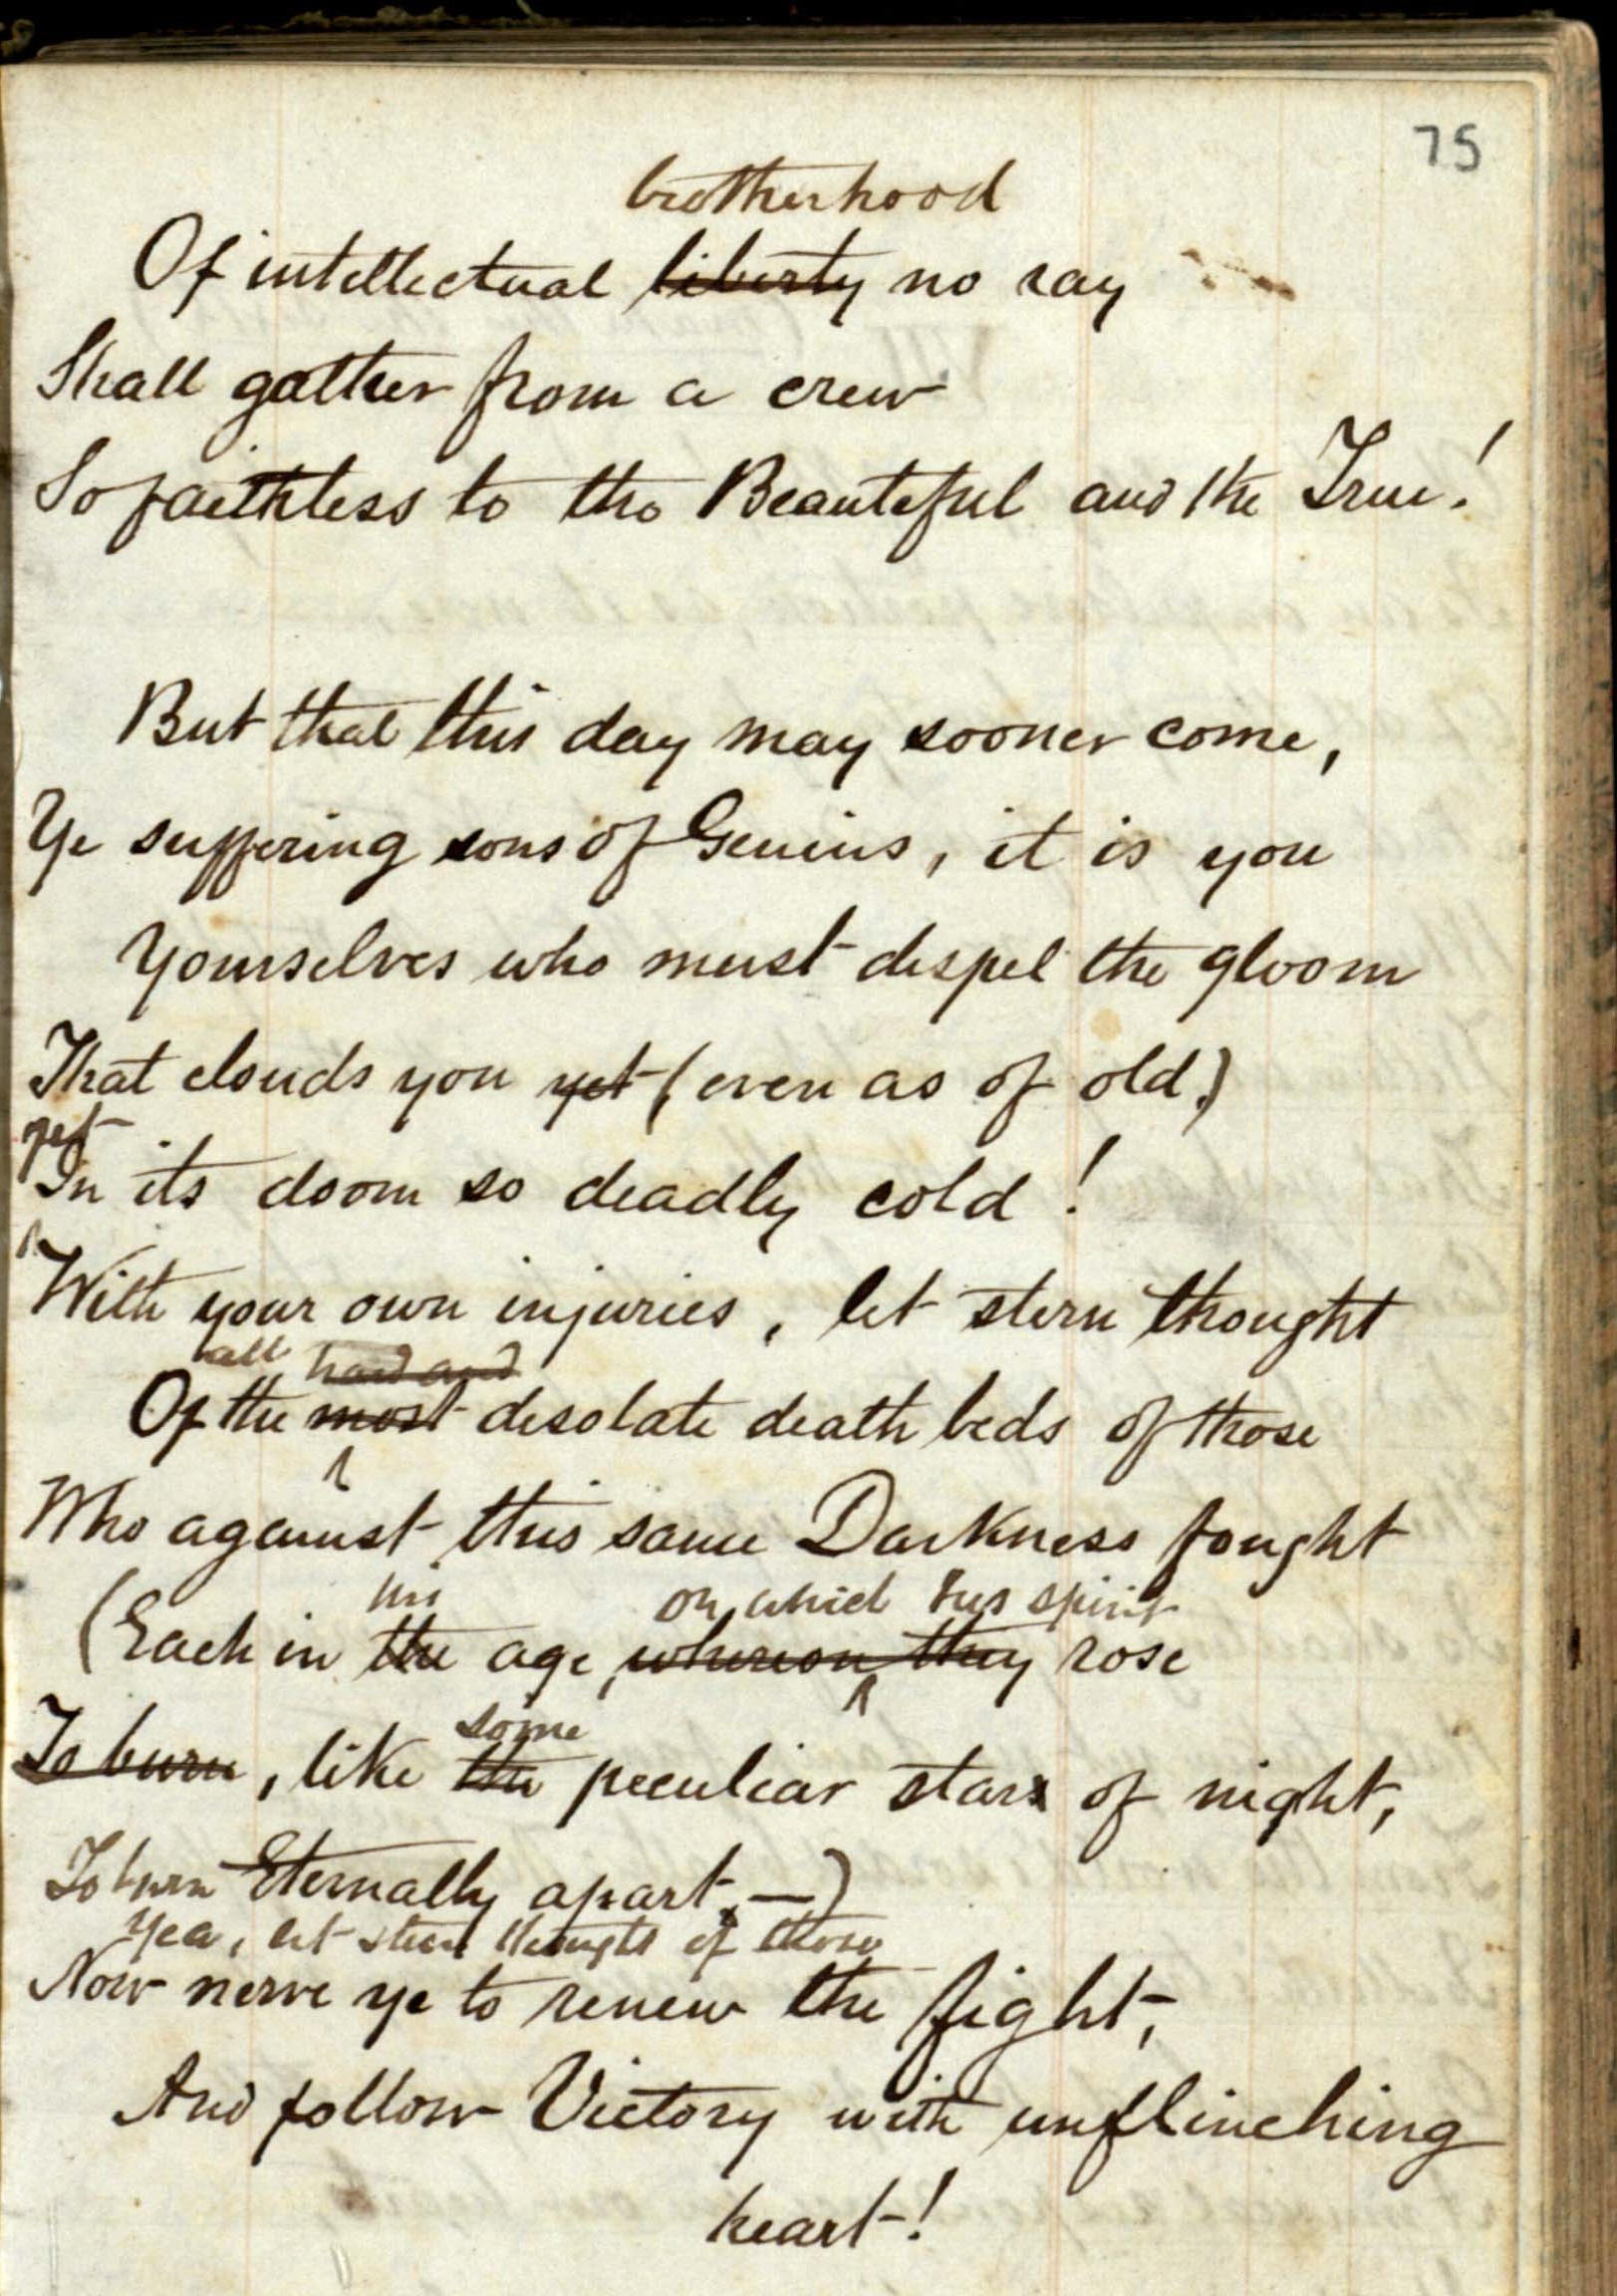 75
brotherhood
Of intellectual liberty no ray
Shall gather from a crew
So faithless to the Beautiful and the True!
But that this day may sooner come,
Ye suffering sons of Genius, it is you
Yourselves who must dispel the gloom
That clouds you yet (even as of old)
yet
In its doom so deadly cold!
With your own injuries, let stern thought
all hard and
Of the most desolate death beds of those
Who against this same Darkness fought
his on which his spirit
(Each in the age, whereon they rose
some
To burn, like the peculiar stars of night,
To burn Eternally apart, —)
Yea, let stern thoughts of those
Now nerve ye to renew the fight,
And follow Victory with unflinching
heart!